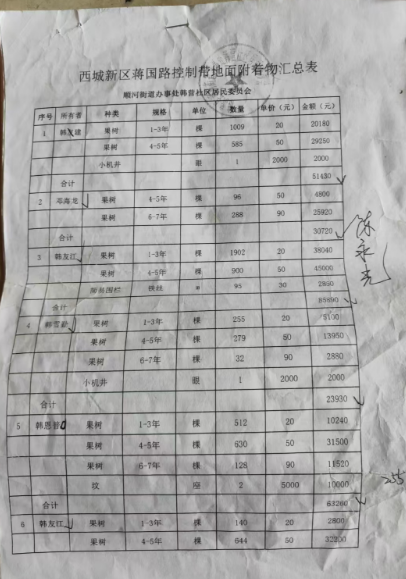 西城新区蒋国路控制带地面附着物汇总表
顺河街道办事处韩曾社区居民委员会
序号 所有者 种类 规格 单位 数量 单价（元） 金额（元）
1 果树 1-3年 棵 1009 20 20180
果树 4-5年 棵 585 50 29250
小机井 眼 1 2000 2000
合计 51430
2 邓海龙 果树 4-5年 棵 96 50 4800
果树 6-7年 棵 288 90 25920
合计 30720
3 韩友江 果树 1-3年 棵 1902 20 38040
果树 4-5年 棵 900 50 45000
铁丝 95 30 2850
合计 85890
4 果树 1-3年 棵 255 20 5100
果树 4-5年 棵 279 50 13950
果树 6-7年 棵 32 90 2880
小机井 眼 1 2000 2000
合计 23930
5 韩恩 果树 1-3年 棵 512 20 10240
果树 4-5年 棵 630 50 31500
果树 6-7年 棵 126 90 11520
坟 座 2 5000 10000
合计 63260
6 韩友江 果树 1-3年 棵 140 20 2800
果树 4-5年 棵 644 50 32200
陈永亮